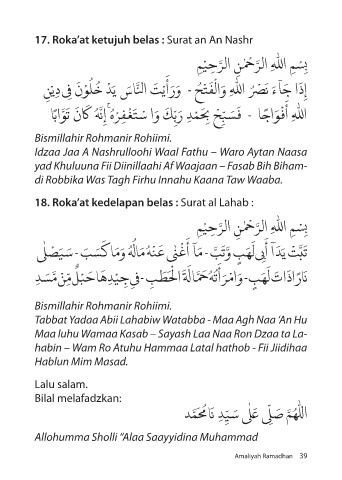 17. Roka’at ketujuh belas : Surat an An Nashr
بِسْمِ اللهِ الرَّحْمٰنِ الرَّحِيْمِ
إِذَا جَآءَ نَصْرُ اللهِ وَالْفَتْحُ - وَرَأَيْتَ النَّاسَ يَدْ خُلُوْنَ فِى دِيْنِ
اللهِ أَفْوَاجًا - فَسَبِّحْ بِحَمْدِ رَبِّكَ وَا سْتَغْفِرْهُ إِنَّهُ كَانَ تَوَّابًا
Bismillahir Rohmanir Rohiimi.
Idzaa Jaa A Nashrulloohi Waal Fathu – Waro Aytan Naasa
yad Khuluuna Fii Diinillaahi Af Waajaan – Fasab Bih Biham-
di Robbika Was Tagh Firhu Innahu Kaana Taw Waaba.
18. Roka’at kedelapan belas : Surat al Lahab :
بِسْمِ اللهِ الرَّحْمٰنِ الرَّحِيْمِ
تَبَّتْ يَدَآ أَبِى لَهَبٍ وَّتَبَّ - مَآ أَغْنٰى عَنْهُ مَالُهُ وَمَا كَسَبَ - سَيَصْلٰى
نَارًا ذَاتَ لَهَبٍ - وَامْرَأَتُهُ حَمَّالَةَ الْحَطَبِ - فِى جِيْدِهَا حَبْلٌ مِّنْ مَّسَدٍ
Bismillahir Rohmanir Rohiimi.
Tabbat Yadaa Abii Lahabiw Watabba - Maa Agh Naa ‘An Hu
Maa luhu Wamaa Kasab – Sayash Laa Naa Ron Dzaa ta La-
habin – Wam Ro Atuhu Hammaa Latal hathob - Fii Jiidihaa
Hablun Mim Masad.
Lalu salam.
Bilal melafadzkan:
اَللّٰهُمَّ صَلِّ عَلٰى سَيِّدِ نَا مُحَمَّد
Allohumma Sholli “Alaa Saayyidina Muhammad
Amaliyah Ramadhan 39